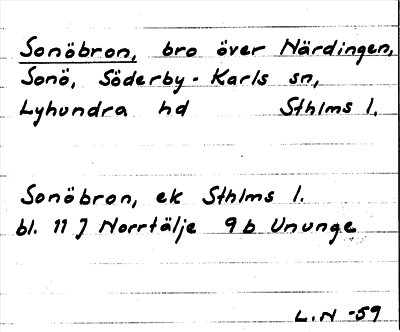 Sonöbron, bro över Närdingen,
Sonö, Söderby-Karls sn,
Lyhundra hd Sthlms l.
Sonöbron, ek Sthlms l.
bl. 11 J Norrtälje 9 b Ununge
L.N -59